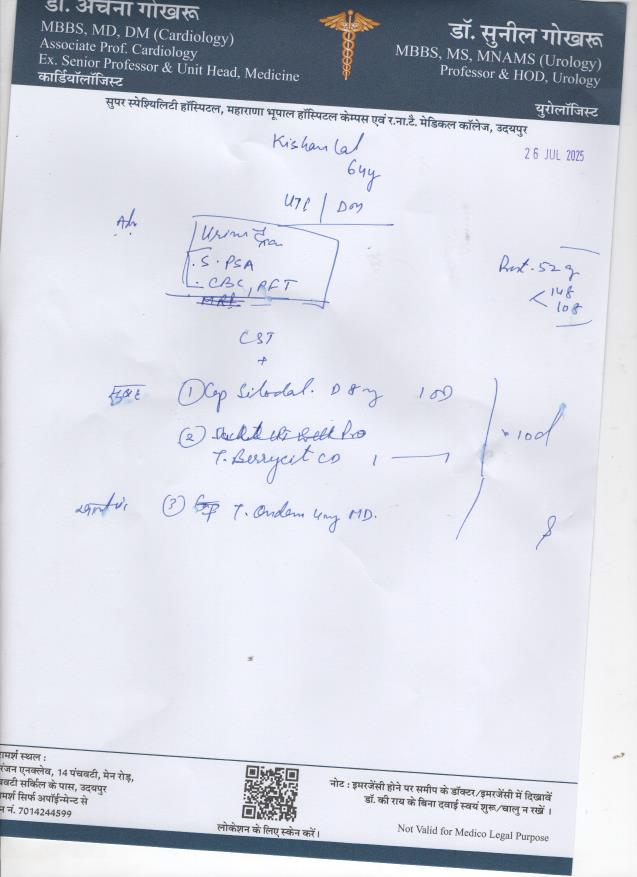 डॉ. अर्चना गोखरू
MBBS, MD, DM (Cardiology)
Associate Prof. Cardiology
Ex. Senior Professor & Unit Head, Medicine
कार्डियॉलॉजिस्ट
डॉ. सुनील गोखरू
MBBS, MS, MNAMS (Urology)
Professor & HOD, Urology
यूरोलॉजिस्ट
सुपर स्पेश्यिलिटी हॉस्पिटल, महाराणा भूपाल हॉस्पिटल केम्पस एवं र.ना.टै. मेडिकल कॉलेज, उदयपुर
Kishan Lal
64y
26 JUL 2025
Adv
Urine
S. PSA
CBC, RFT
Prost. 52 g
148
108
CST
+
सुबह
① Cap Silodal. D 8mg 1 OD
②
T. Berrycit CD 1
10d
③ T. Ondem 4mg MD.
रामर्श स्थल :
रंजन एनक्लेव, 14 पंचवटी, मेन रोड़,
चवटी सर्किल के पास, उदयपुर
मर्श सिर्फ अपॉईन्मेन्ट से
न नं. 7014244599
लोकेशन के लिए स्केन करें।
नोट : इमरजेंसी होने पर समीप के डॉक्टर/इमरजेंसी में दिखावें
डॉ. की राय के बिना दवाई स्वयं शुरू/चालु न रखें ।
Not Valid for Medico Legal Purpose